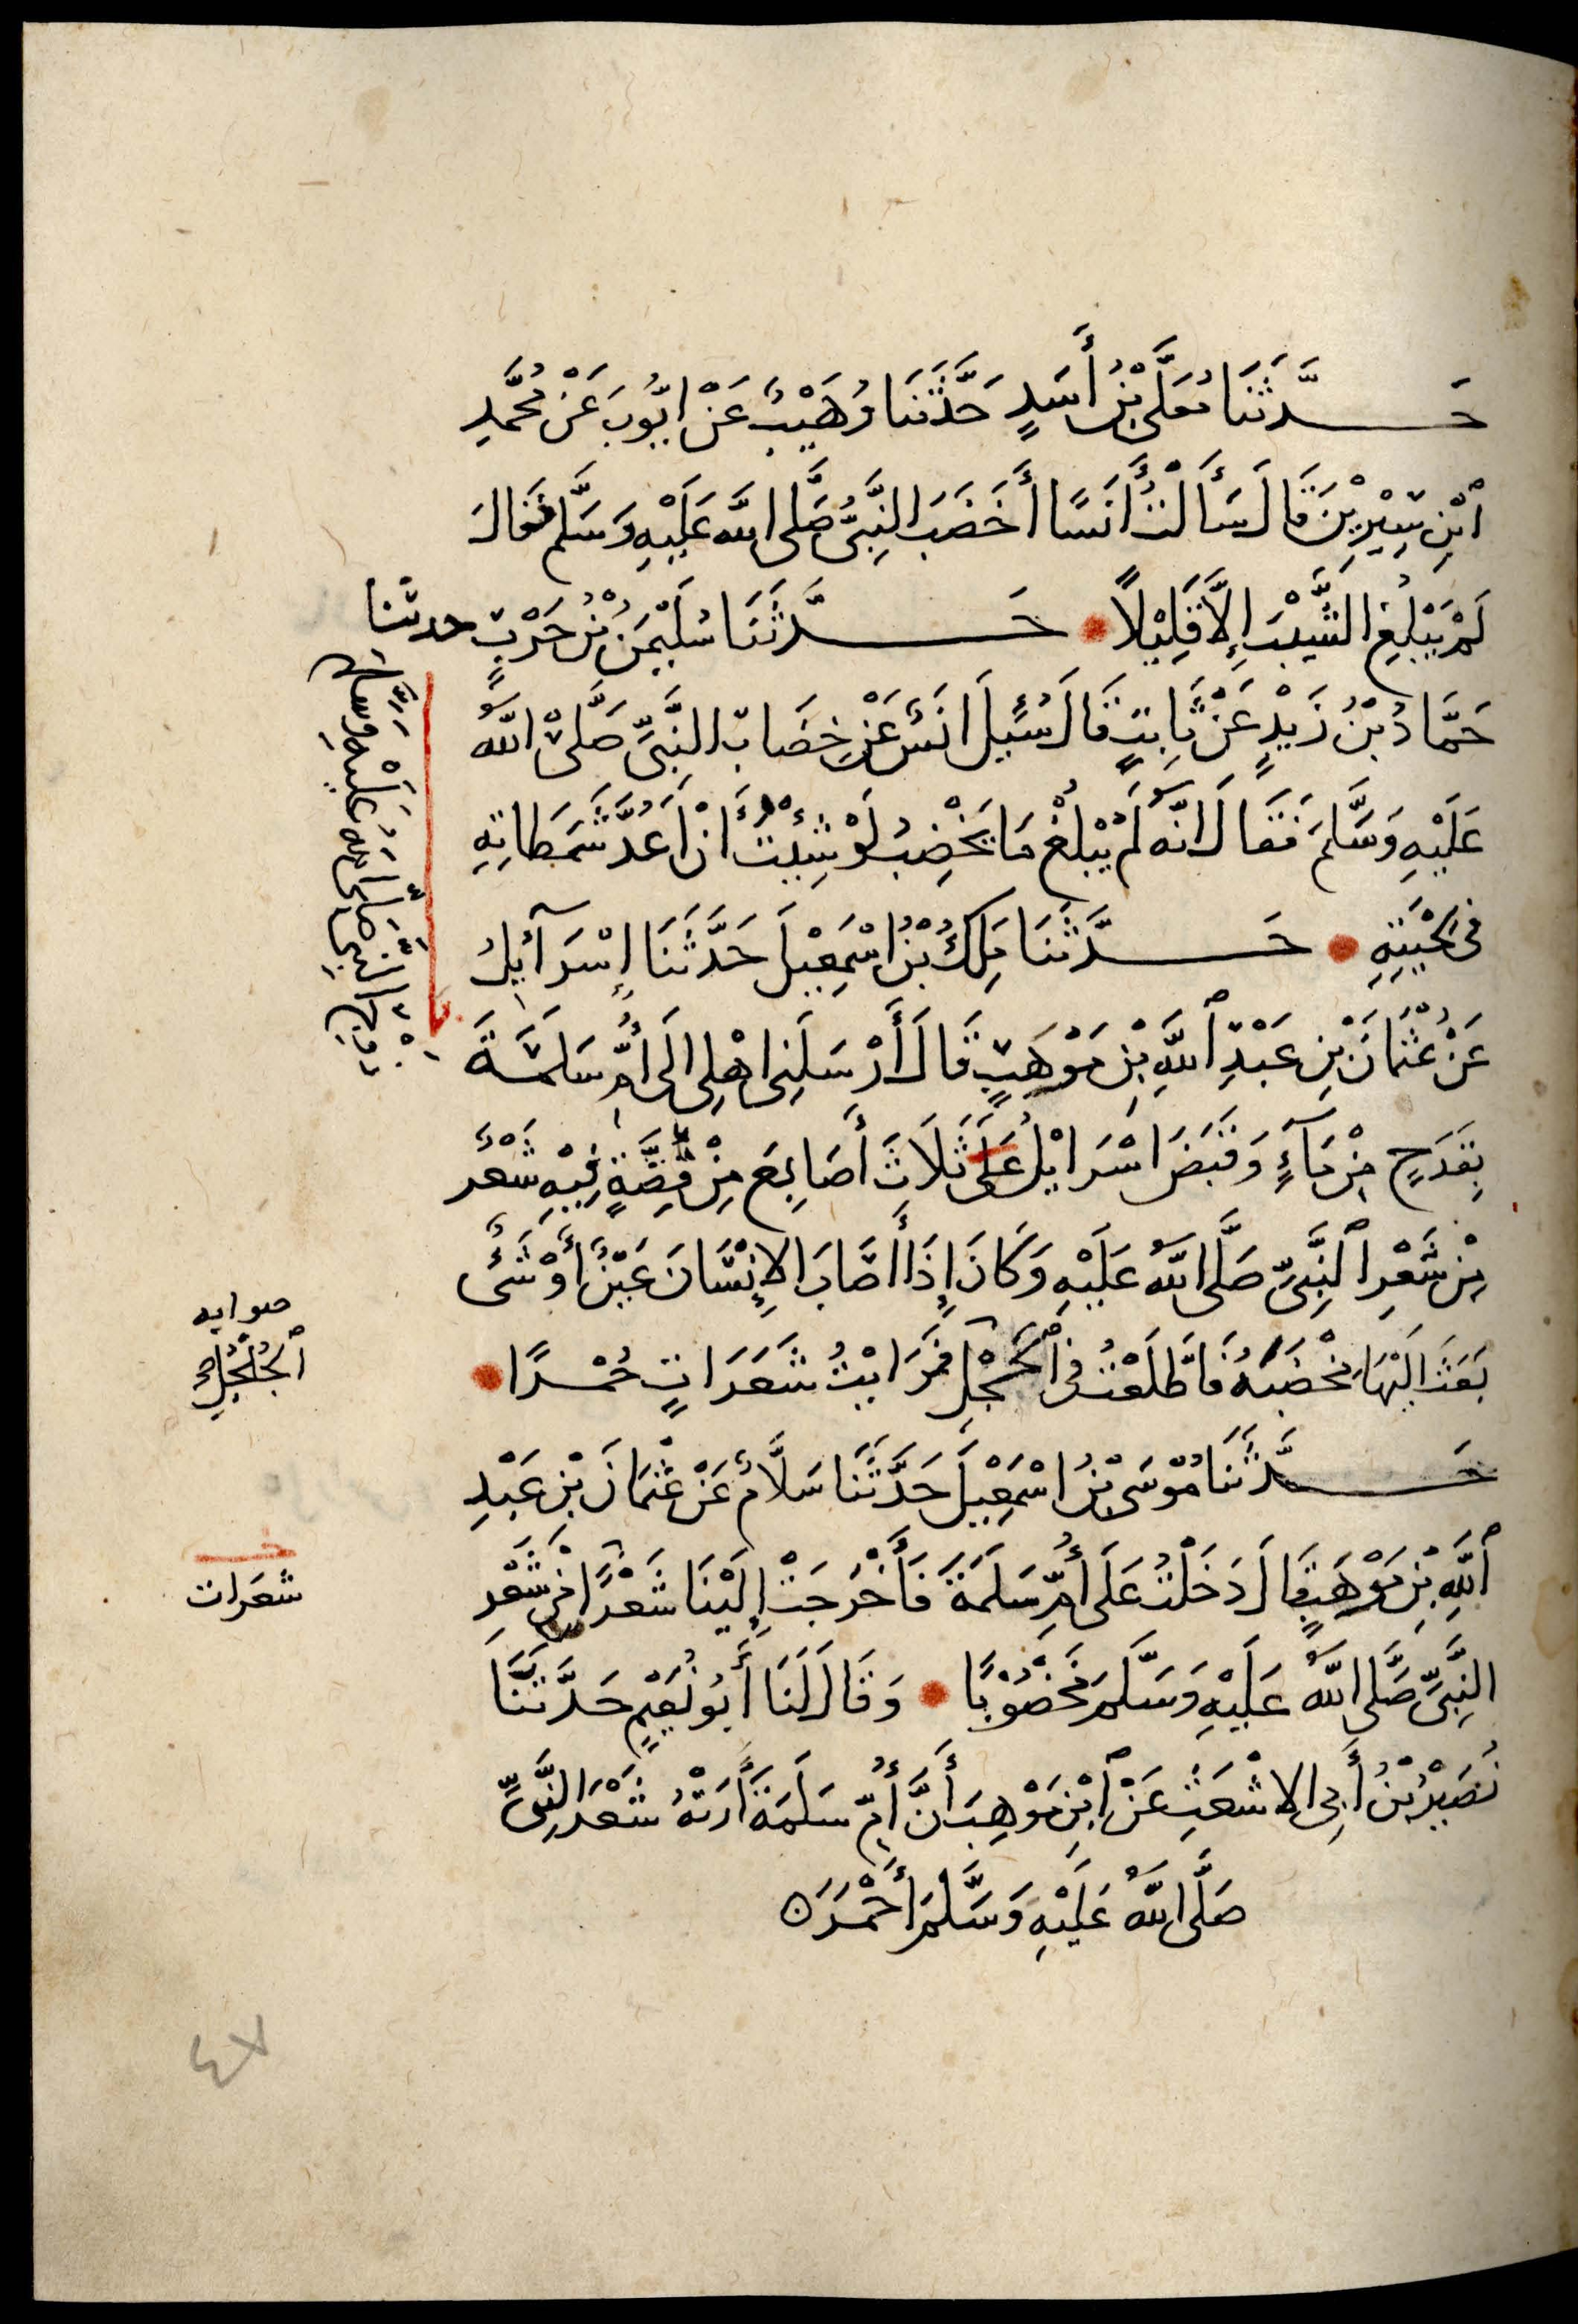 حَدَّثَنَا مُعَلَّى بْنُ أَسَدٍ حَدَّثَنَا وُهَيْبٌ عَنْ ايُّوبَ عَنْ مُحَمَّدِ
ٱبْنِ سِيْرِيْنَ قَالَ سَأَلْتُ أَنَسًا أَخَضَبَ النَّبِيُّ صَلَّى اللَّه عَلَيْهِ وَسَلَّم فَقَالَ
لَمْ يَبْلُغِ الشَّيْبَ إِلَّا قَلِيْلًا حَدَّثَنَا سُلَيْمَنُ بْنُ حَرْبٍ حدثنا
حَمَّادُ بْنُ زَيْدٍ عَنْ ثَابِتٍ قَالَ سُئِيلَ انَسٌ عَنْ خِضَابِ النَّبِيِّ صَلَّى اللَّهُ
عَلَيْهِ وَسَلَّمَ فَقَالَ انَّهُ لَمْ يَبْلُغْ مَا يَخْضِبُ لَوْ شِئْتُ أَنْ أَعُدَّ شَمَطَاتِهِ
فِى لِحْيَتِهِ حَدَّثَنَا مَلِكُ بْنُ اسْمَعِيْلَ حَدَّثَنَا إِسْرَآئِيلُ
عَنْ عُثْمَانَ بْنِ عَبْدِ ٱللَّهِ بْنِ مَوْهَبٍ قَالَ أَرْسَلَنِى اهْلِى الَى أُمِّ سَلَمَةَ
زَوْجِ النَّبِيِّ صَلَّى اللَّهُ عَلَيْهِ وَسَلَّمَ
بِقَدَحٍ مِنْ مَآءٍ وَقَبَضَ اسْرَايْلُ عَلَى ثَلَاثَ أَصَابِعَ مِنْ فِضَّةٍ فِيْهِ شَعْرٌ
مِنْ شَعْرِ ٱلنَّبِيِّ صَلَّى اللَّهُ عَلَيْهِ وَكَانَ إِذَا أَصَابَ الإِنْسَانَ عَيْنٌ أَوْ شَىْءٌ
بَعَثَ الَيْهَا مِخْضَبَهُ فَاطَّلَعْتُ فِى ٱلْحَجْلِ فَرَايْتُ شَعَرَاتٍ حُمْرًا
صوابه
ٱلْجُلْجُلِ
حَدَّثَنَا مُوْسَى بْنُ اسْمَعِيْلَ حَدَّثَنَا سَلَّامٌ عَنْ عُثْمَانَ بْنِ عَبْدِ
ٱللَّهِ بْنِ مَوْهَبٍ قَالَ دَخَلْتُ عَلَى أُمِّ سَلَمَةَ فَأَخْرَجَتْ إِلَيْنَا شَعْرًا مِنْ شَعْرِ
شعَرات
النَّبِيِّ صَلَّى اللَّهُ عَلَيْهِ وَسَلَّمَ مَخْضُوْبًا وَقَالَ لَنَا أَبُو نُعَيْمٍ حَدَّثَنَا
نُصَيْرُ بْنُ أَبِى الاشْعَثِ عَنْ ٱبْنِ مَوْهِبَ أَنَّ أُمَّ سَلَمَةَ أَرَتْهُ شَعْرَ النَّبِيِّ
صَلَّى اللَّهُ عَلَيْهِ وَسَلَّمَ أَحْمَرَ ۵
٤٧